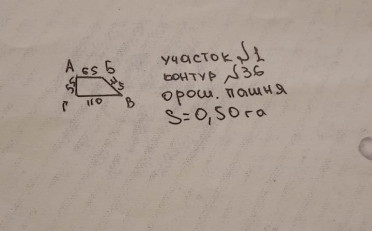 А 65 Б
55
45
Г 110 В
участок №1
контур №36
орош. пашня
S=0,50га